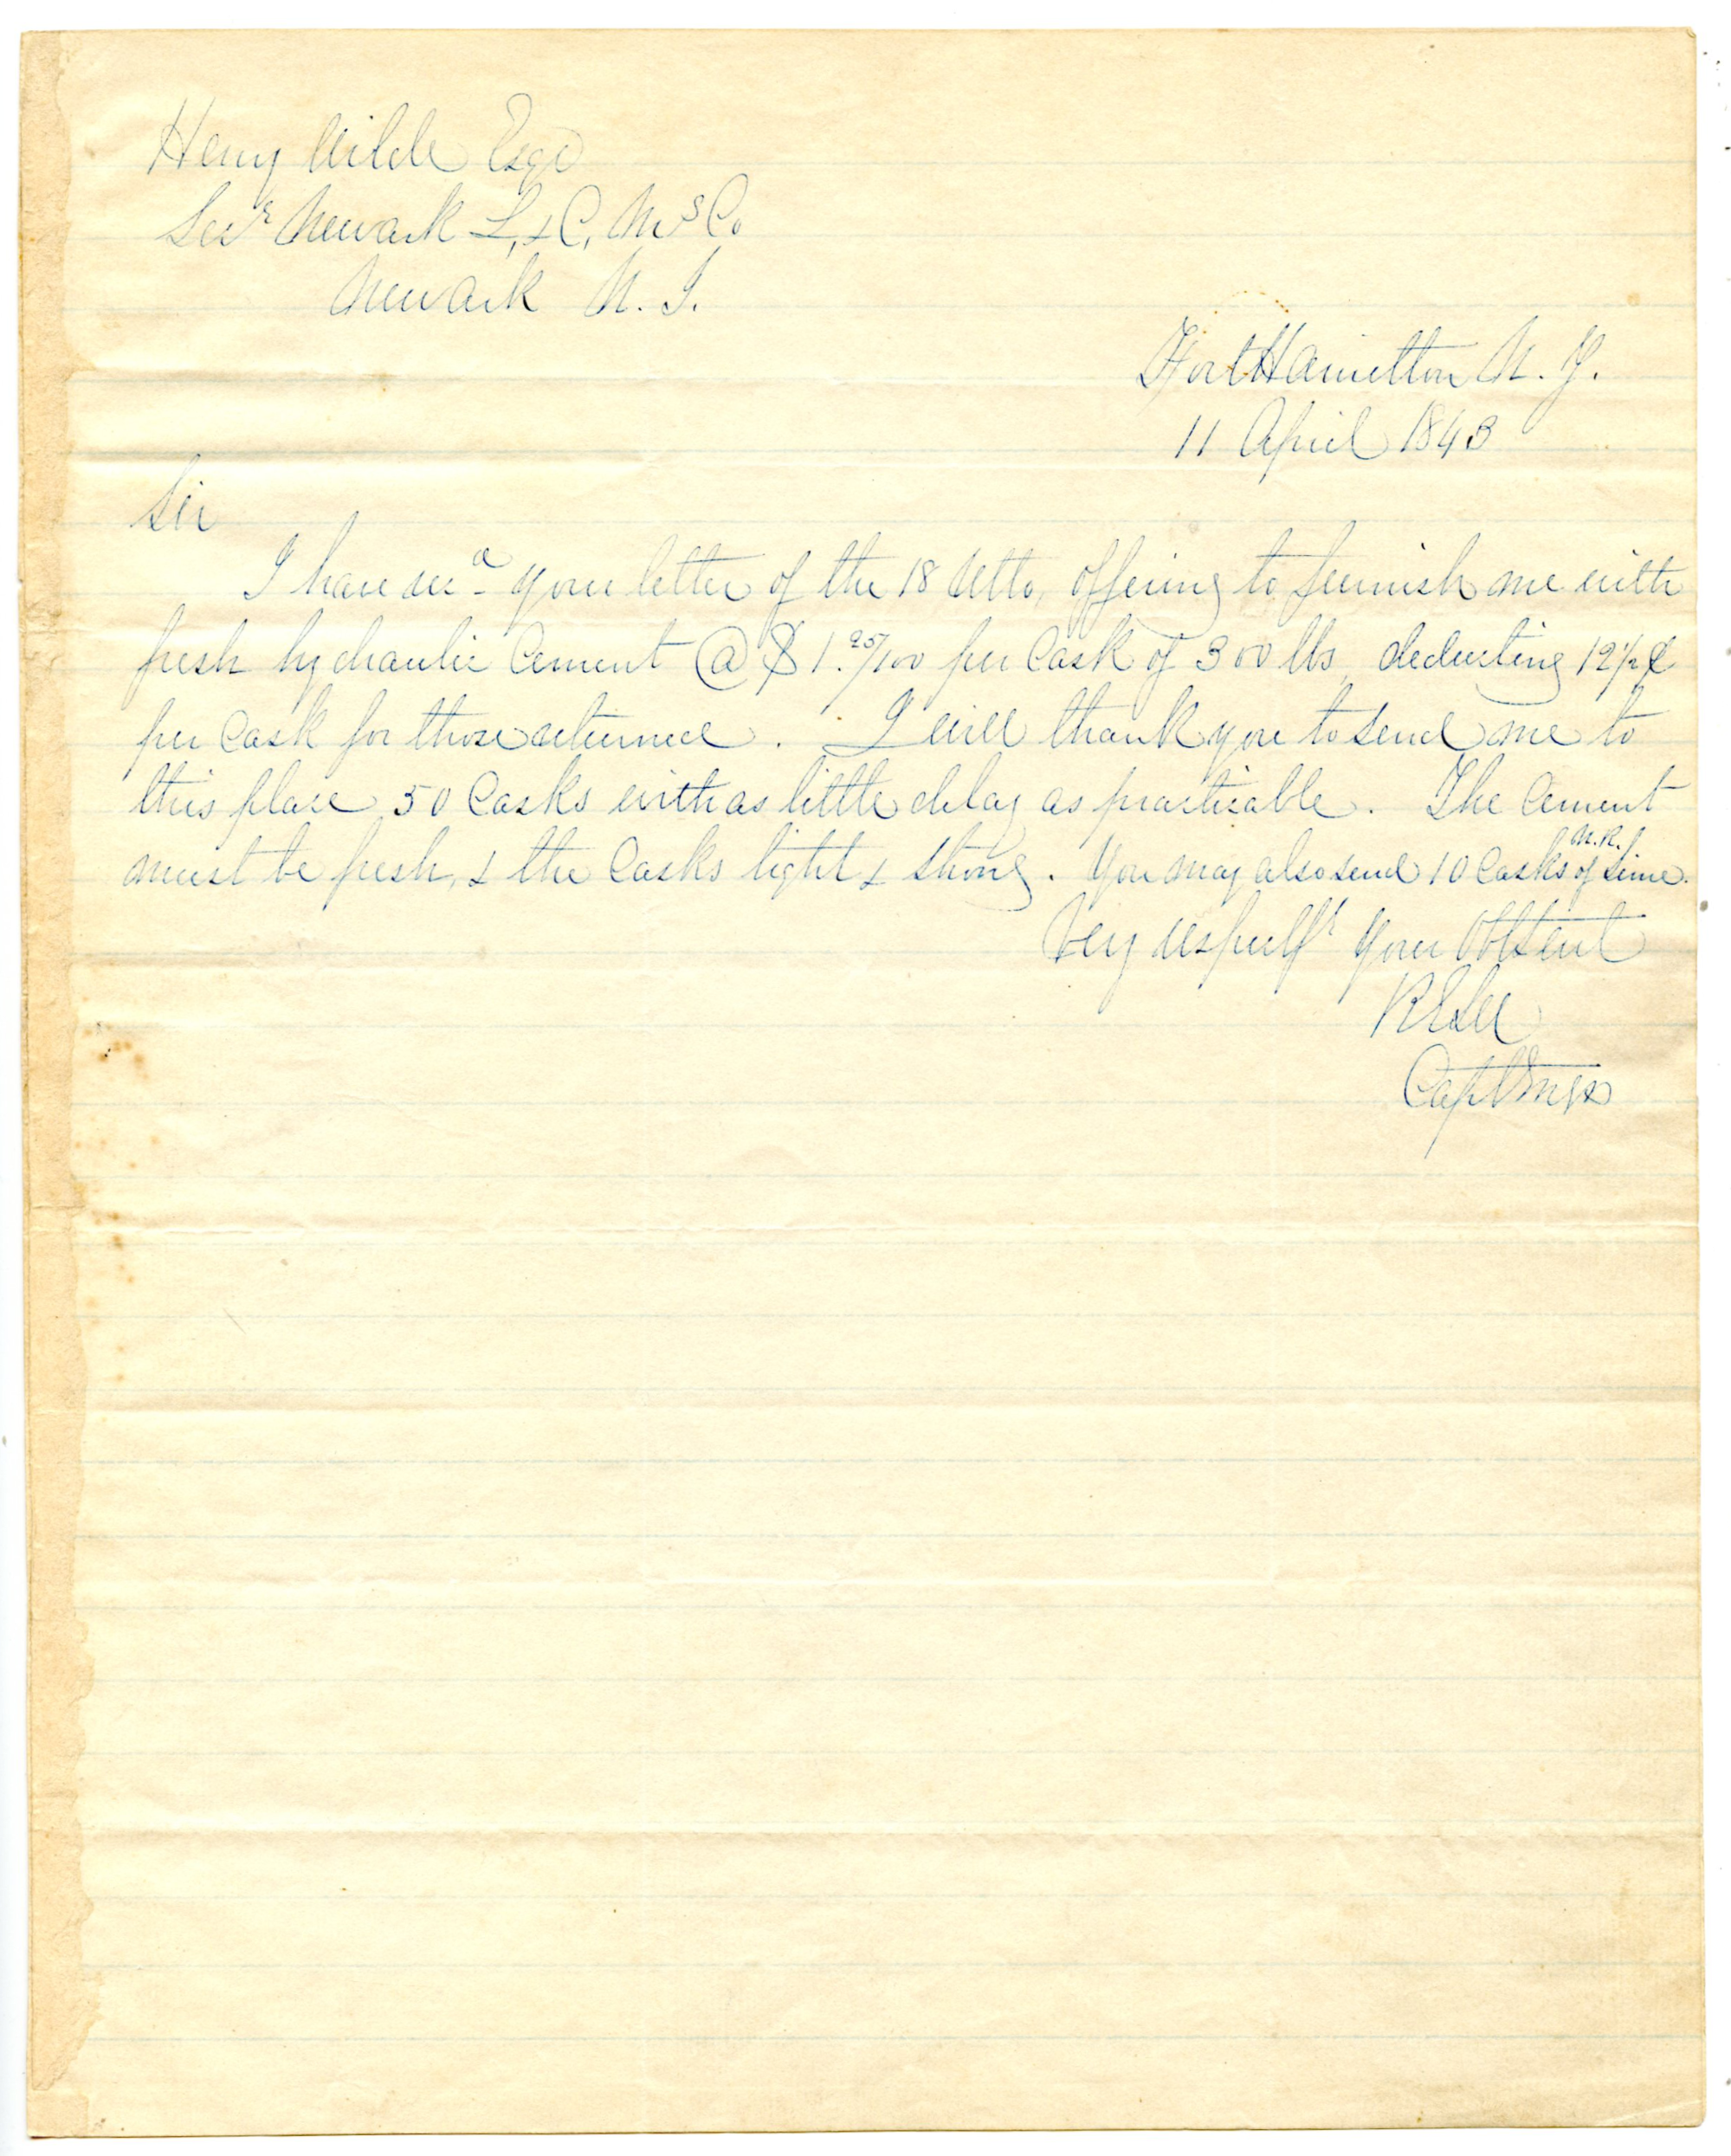 Henry Wilde Esqr
Secr Newark L, & C, Ms Co
Newark N. J.
Fort Hamilton N. Y.
11 April 1843
Sir
I have recd your letter of the 18 Ulto, offering to furnish me with
fresh hydraulic Cement @ $1.25/100 per Cask of 300 lbs deducting 12 1/2 ¢
per Cask for those returned. I will thank you to send me to
this place 50 Casks with as little delay as practicable. The Cement
must be fresh, & the Casks tight & strong. You may also send 10 Casks of N.R. Lime.
Very respecfy Your Obt Servt
R E Lee
Capt Engrs